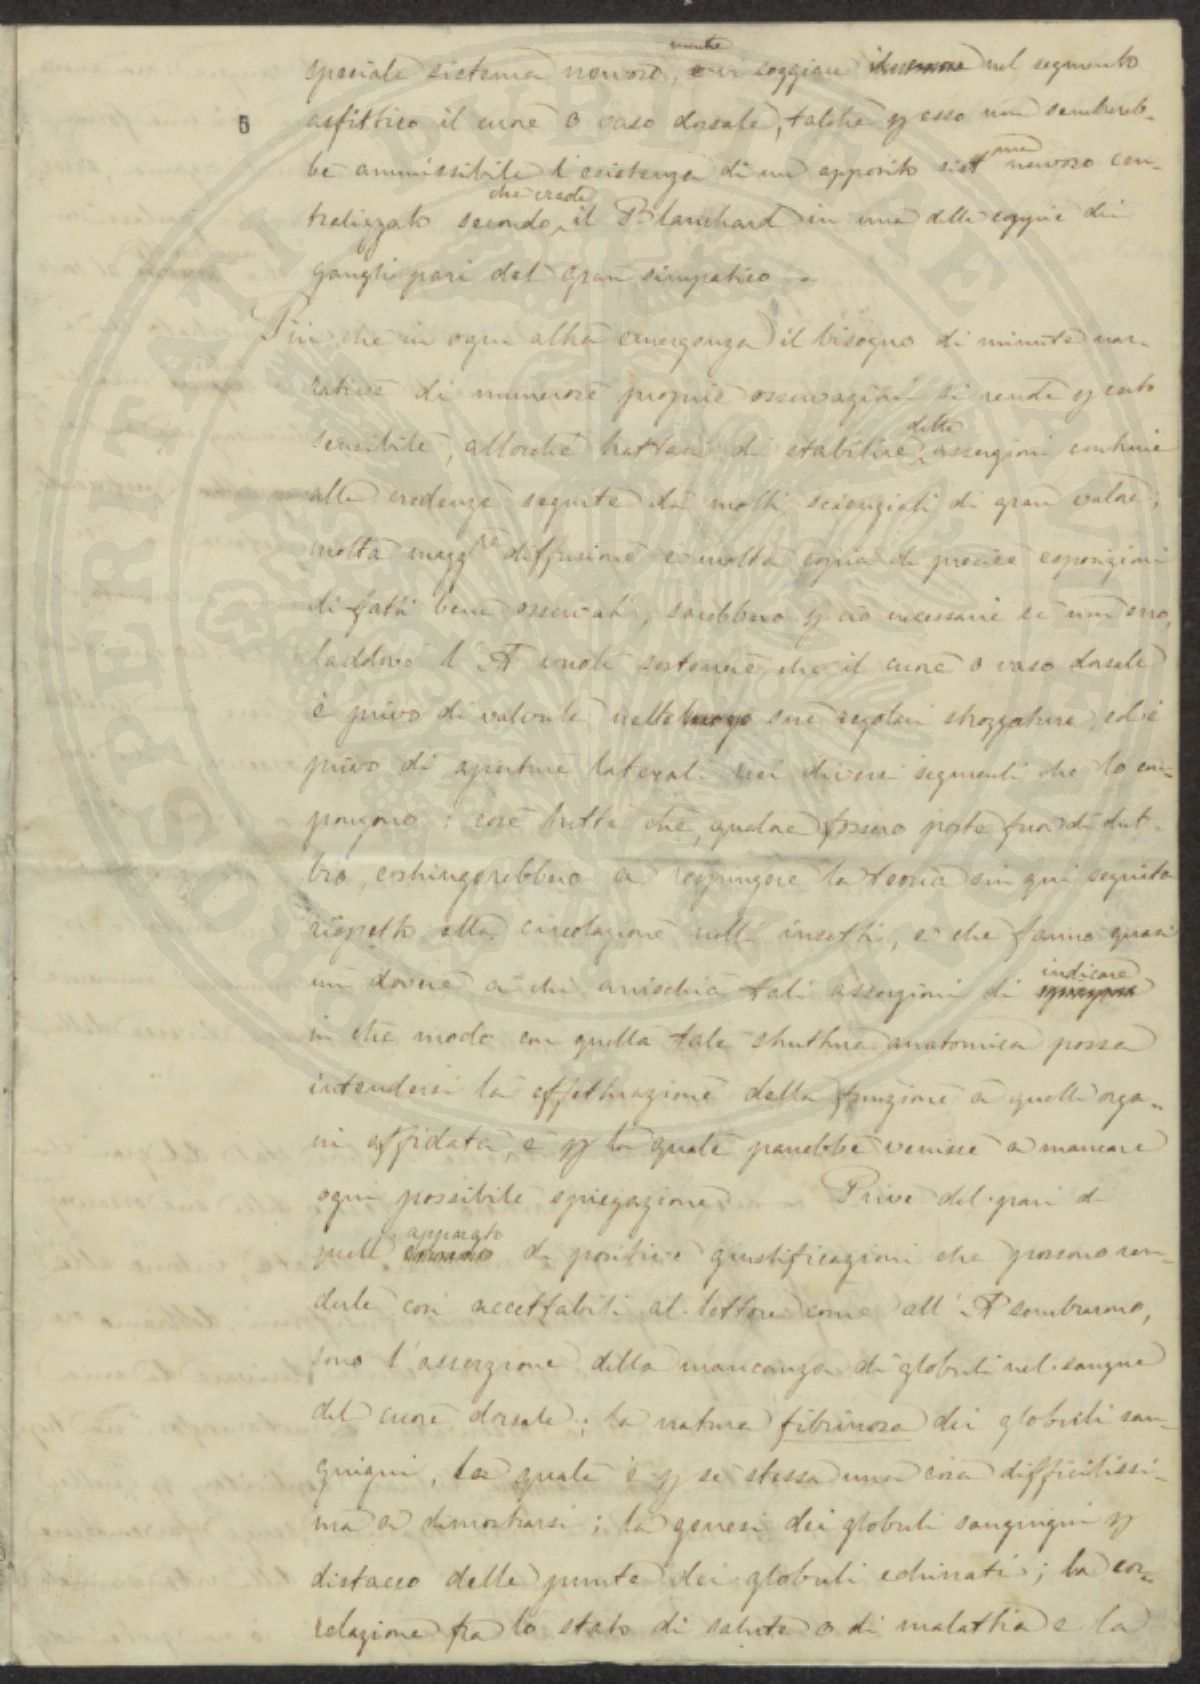 speciale sistema nervoso, mentre ivi soggiace nel segmento
5
asfittico il cuore o vaso dorsale, talchè p esso non sembrereb-
be ammissibile l'esistenza di un apposito sistma nervoso cen-
tralizzato secondo che crede il Blanchard in una delle coppie dei
gangli pari del gran simpatico.
Più che in ogni altra emergenza il bisogno di minute nar-
rative di numerose proprie osservazioni si rende p certo
sensibile, allorchè trattasi di stabilire delle asserzioni contrarie
alle credenze seguite da molti scienziati di gran valore;
molta magg.re diffusione e molta copia di precise esposizioni
di fatti bene osservati, sarebbero p ciò necessarie se non erro,
laddove l'A vuole sostenere che il cuore o vaso dorsale
è privo di valvole nelle sue regolari strozzature, ed è
privo di aperture laterali nei diversi segmenti che lo com-
pongono: cose tutte che, qualora fossero poste fuori di dub-
bio, costringerebbero a respingere la teoria sin qui seguita
rispetto alla circolazione nelli insetti, e che fanno quasi
un dovere a chi arrischia tali asserzioni di indicare
in che modo con quella tale struttura anatomica possa
intendersi la effettuazione della funzione a quelli orga-
ni affidata, e p la quale parrebbe venisse a mancare
ogni possibile spiegazione. Prive del pari di
quell' apparato di positive giustificazioni che possono ren-
derle così accettabili al lettore come all' A sembrarono,
sono l'asserzione della mancanza di globuli nel sangue
del cuore dorsale; la natura fibrinosa dei globuli san-
guigni, la quale è p se stessa una cosa difficilissi-
ma a dimostrarsi; la genesi dei globuli sanguigni p
distacco delle punte dei globuli echinati; la cor-
relazione fra lo stato di salute o di malattia e la